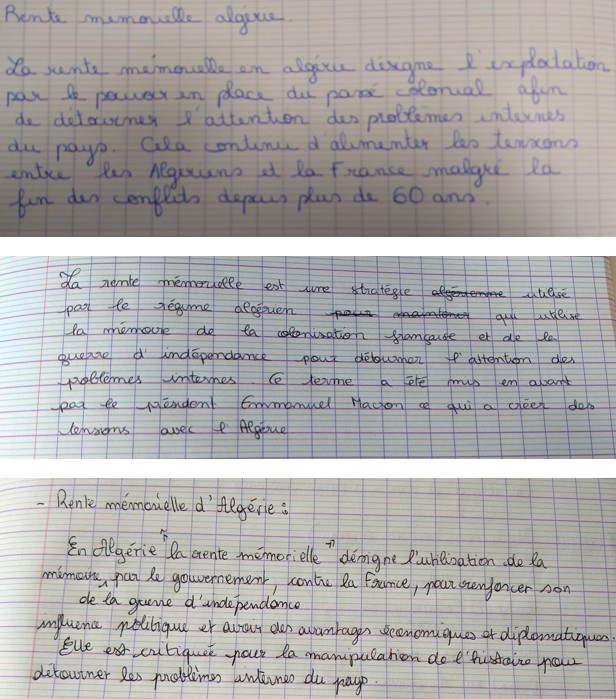 Rente memorielle algérie.
La rente mémorielle en algérie désigne l'exploitation
par le pouvoir en place du passé colonial afin
de détourner l'attention des problèmes internes
du pays. Cela continue d'alimenter les tensions
entre les Algeriens et la France malgré la
fin des conflits depuis plus de 60 ans.
La rente mémorielle est une stratégie algérienne utilisé
par le régime algérien pour maintenir qui utilise
la mémoire de la colonisation française et de la
guerre d'indépendance pour détourner l'attention des
problèmes internes. Ce terme a été mis en avant
par le président Emmanuel Macron ce qui a créer des
tensions avec l'Algérie
- Rente mémorielle d'Algérie :
En Algérie "la rente mémorielle" désigne l'utilisation de la
mémoire, par le gouvernement, contre la France, pour renforcer son
de la guerre d'indépendance
influence politique et avoir des avantages économiques et diplomatiques.
Elle est critiquée pour la manipulation de l'histoire pour
détourner les problèmes internes du pays.